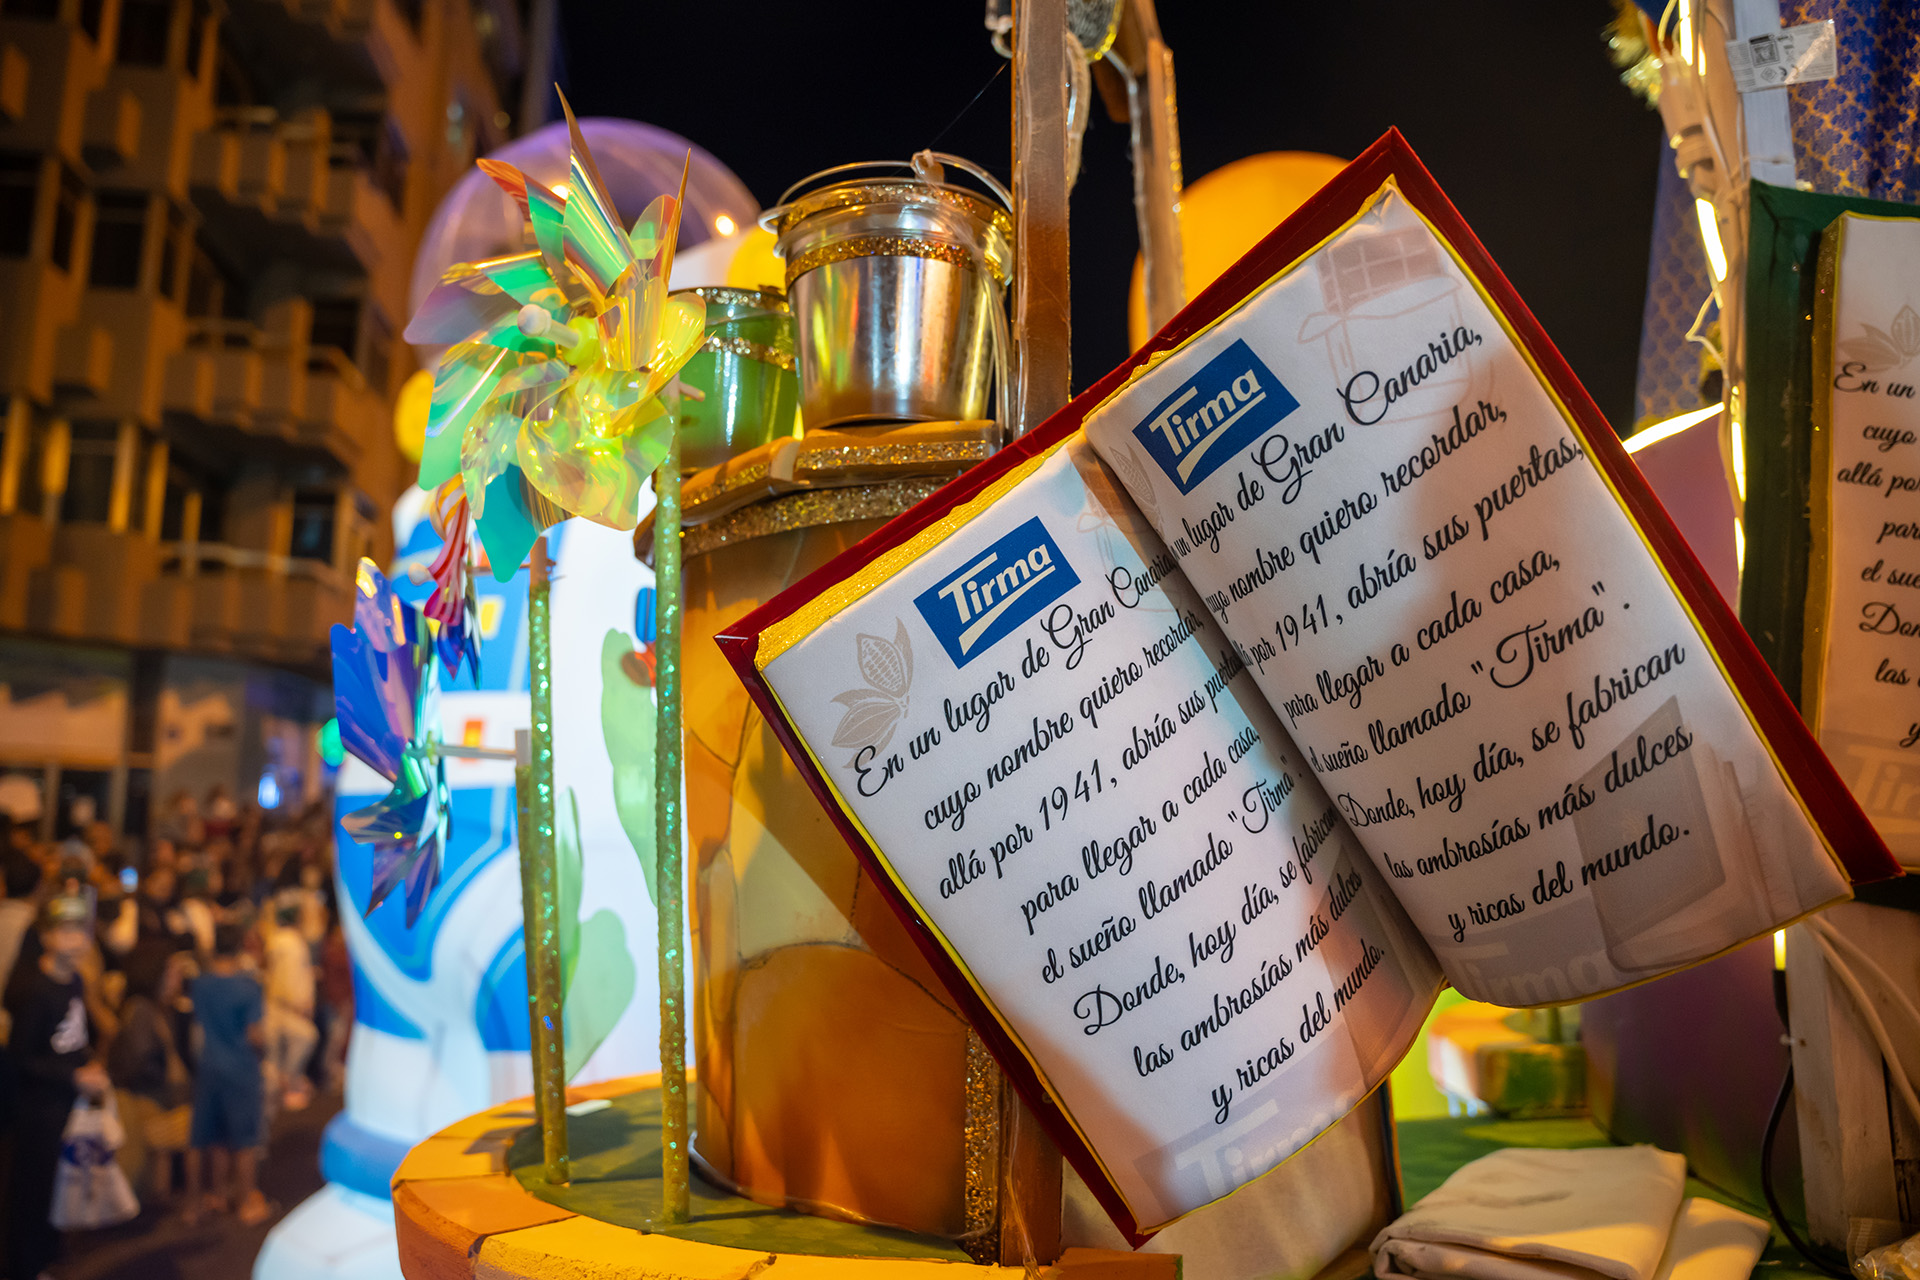 Tirma
En un lugar de Gran Canaria,
cuyo nombre quiero recordar,
allá por 1941, abría sus puertas
para llegar a cada casa,
el sueño llamado "Tirma".
Donde, hoy día, se fabrican
las ambrosías más dulces
y ricas del mundo.
Tirma
Tirma
un lugar de Gran Canaria,
cuyo nombre quiero recordar,
por 1941, abría sus puertas,
para llegar a cada casa,
el sueño llamado "Tirma".
Donde, hoy día, se fabrican
las ambrosías más dulces
y ricas del mundo.
Tirma
En un
cuyo
allá
para
el
las
y